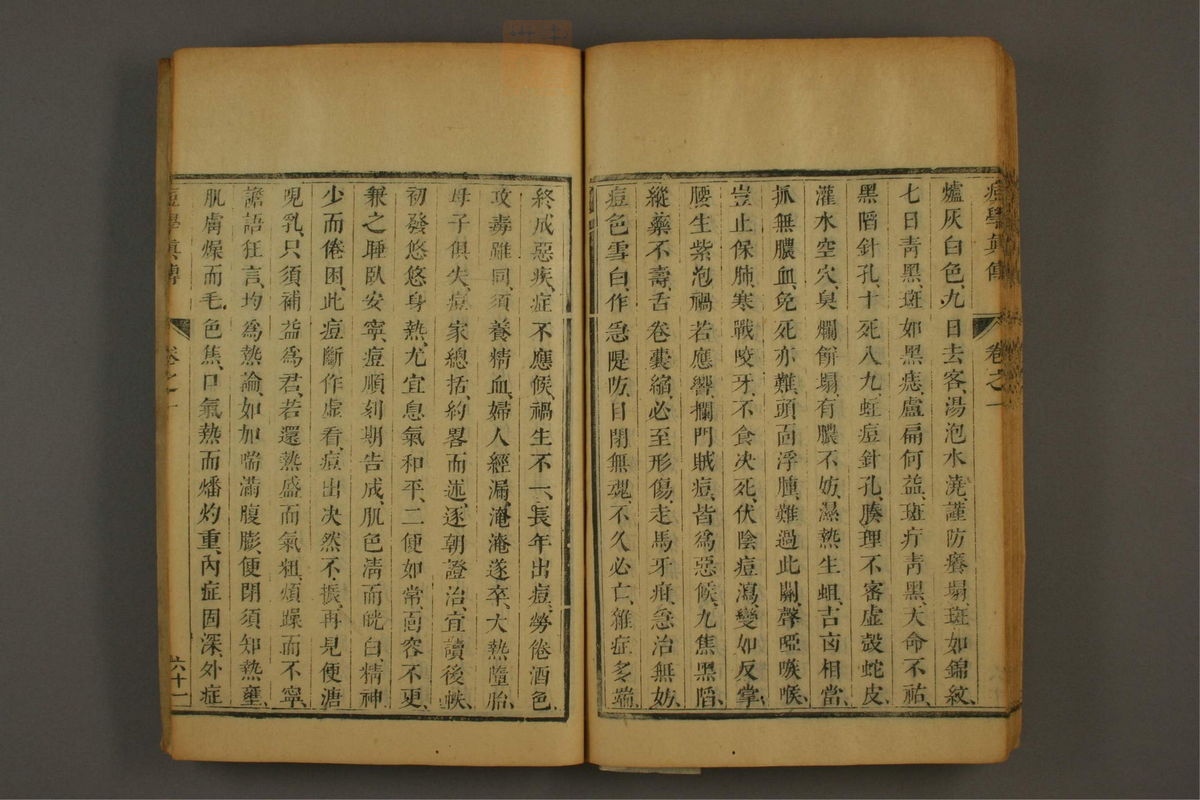 痘學真傳 卷之一
爐灰白色、九日去客、湯泡水澆、謹防癢塌、斑如錦紋、
七日青黑、斑如黑痣、盧扁何益、斑疔青黑、天命不祐、
黑陷針孔、十死八九、蛀痘針孔、腠理不審、虛殼蛇皮、
灌水空穴、臭爛餅塌、有膿不妨、濕熱生蛆、吉凶相當、
抓無膿血、免死亦難、頭面浮腫、難過此關、聲啞嗾喉、
豈止保肺、寒戰咬牙、不食決死、伏陰痘瀉、變如反掌、
腰生紫泡、禍若應響、攔門賊痘、皆為惡候、九焦黑陷、
縱藥不壽、舌卷囊縮、必至形傷、走馬牙疳、急治無妨、
痘色雪白、作急隄防、目閉無魂、不久必亡、雜症多端、
終成惡疾、症不應候、禍生不一、長年出痘、勞倦酒色、
攻毒雖同、須養精血、婦人經漏、淹淹遂卒、大熱墮胎、
母子俱失、痘家總括、約畧而述、逐朝證治、宜讀後帙、
初發悠悠身熱、尤宜息氣和平、二便如常、面容不更、
兼之睡臥安寧、痘順刻期告成、肌色清而㿠白、精神
少而倦困、此痘斷作虛看、痘出決然不振、再見便溏
哯乳、只須補益為君、若還熱盛而氣粗、煩躁而不寧、
譫語狂言、均為熱論、如加喘滿腹膨、便閉須知熱壅、
肌膚燥而毛色焦、口氣熱而燔灼重、內症固深、外症
痘學真傳 卷之一 六十一